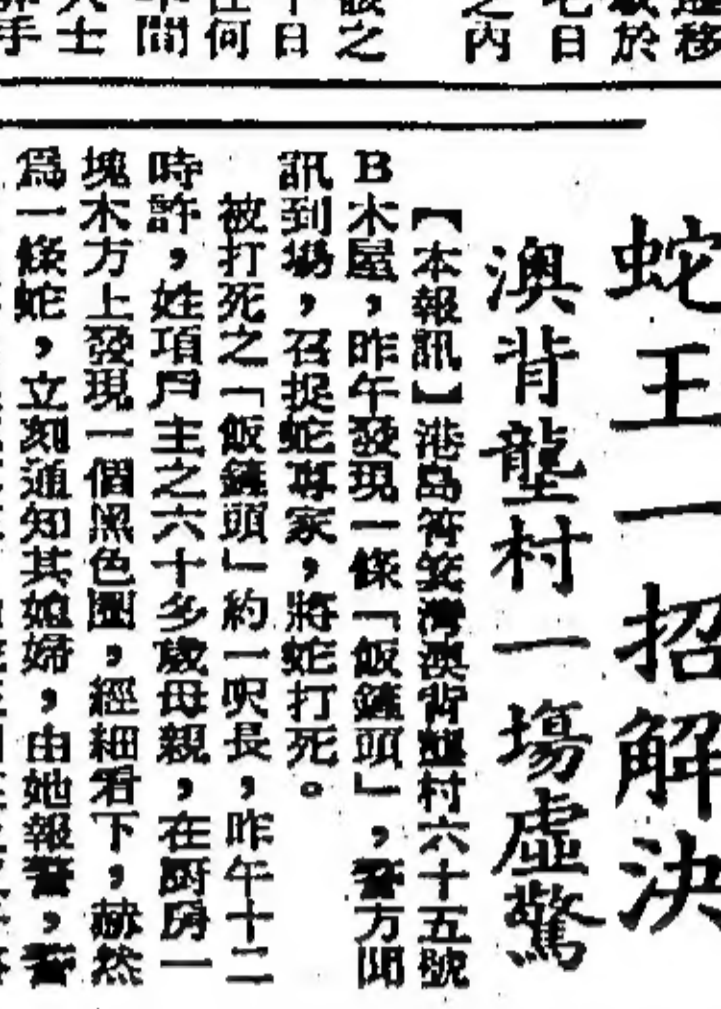 遷移
於
七日
之內
之
十日
任何
年間
人士
手
蛇王一招解決
澳背壟村一場虛驚
【本報訊】港島筲箕灣澳背壟村六十五號
B木屋，昨午發現一條「飯鏟頭」，警方聞
訊到場，召捉蛇專家，將蛇打死。
被打死之「飯鏟頭」約一呎長，昨午十二
時許，姓項戶主之六十多歲母親，在厨房一
塊木方上發現一個黑色圈，經細看下，赫然
爲一條蛇，立刻通知其媳婦，由她報警，警